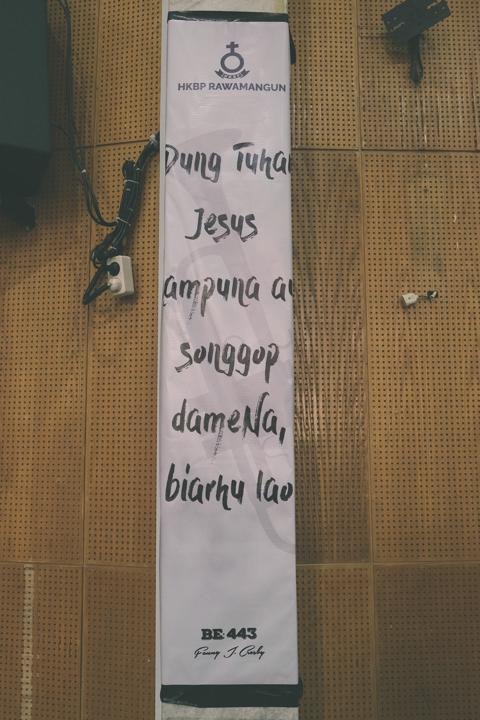 HKBP
HKBP RAWAMANGUN
Dung Tuha
Jesus
ampuna a
songgop
dameNa,
biarhu lao
BE 443
Fanny J. Crosby